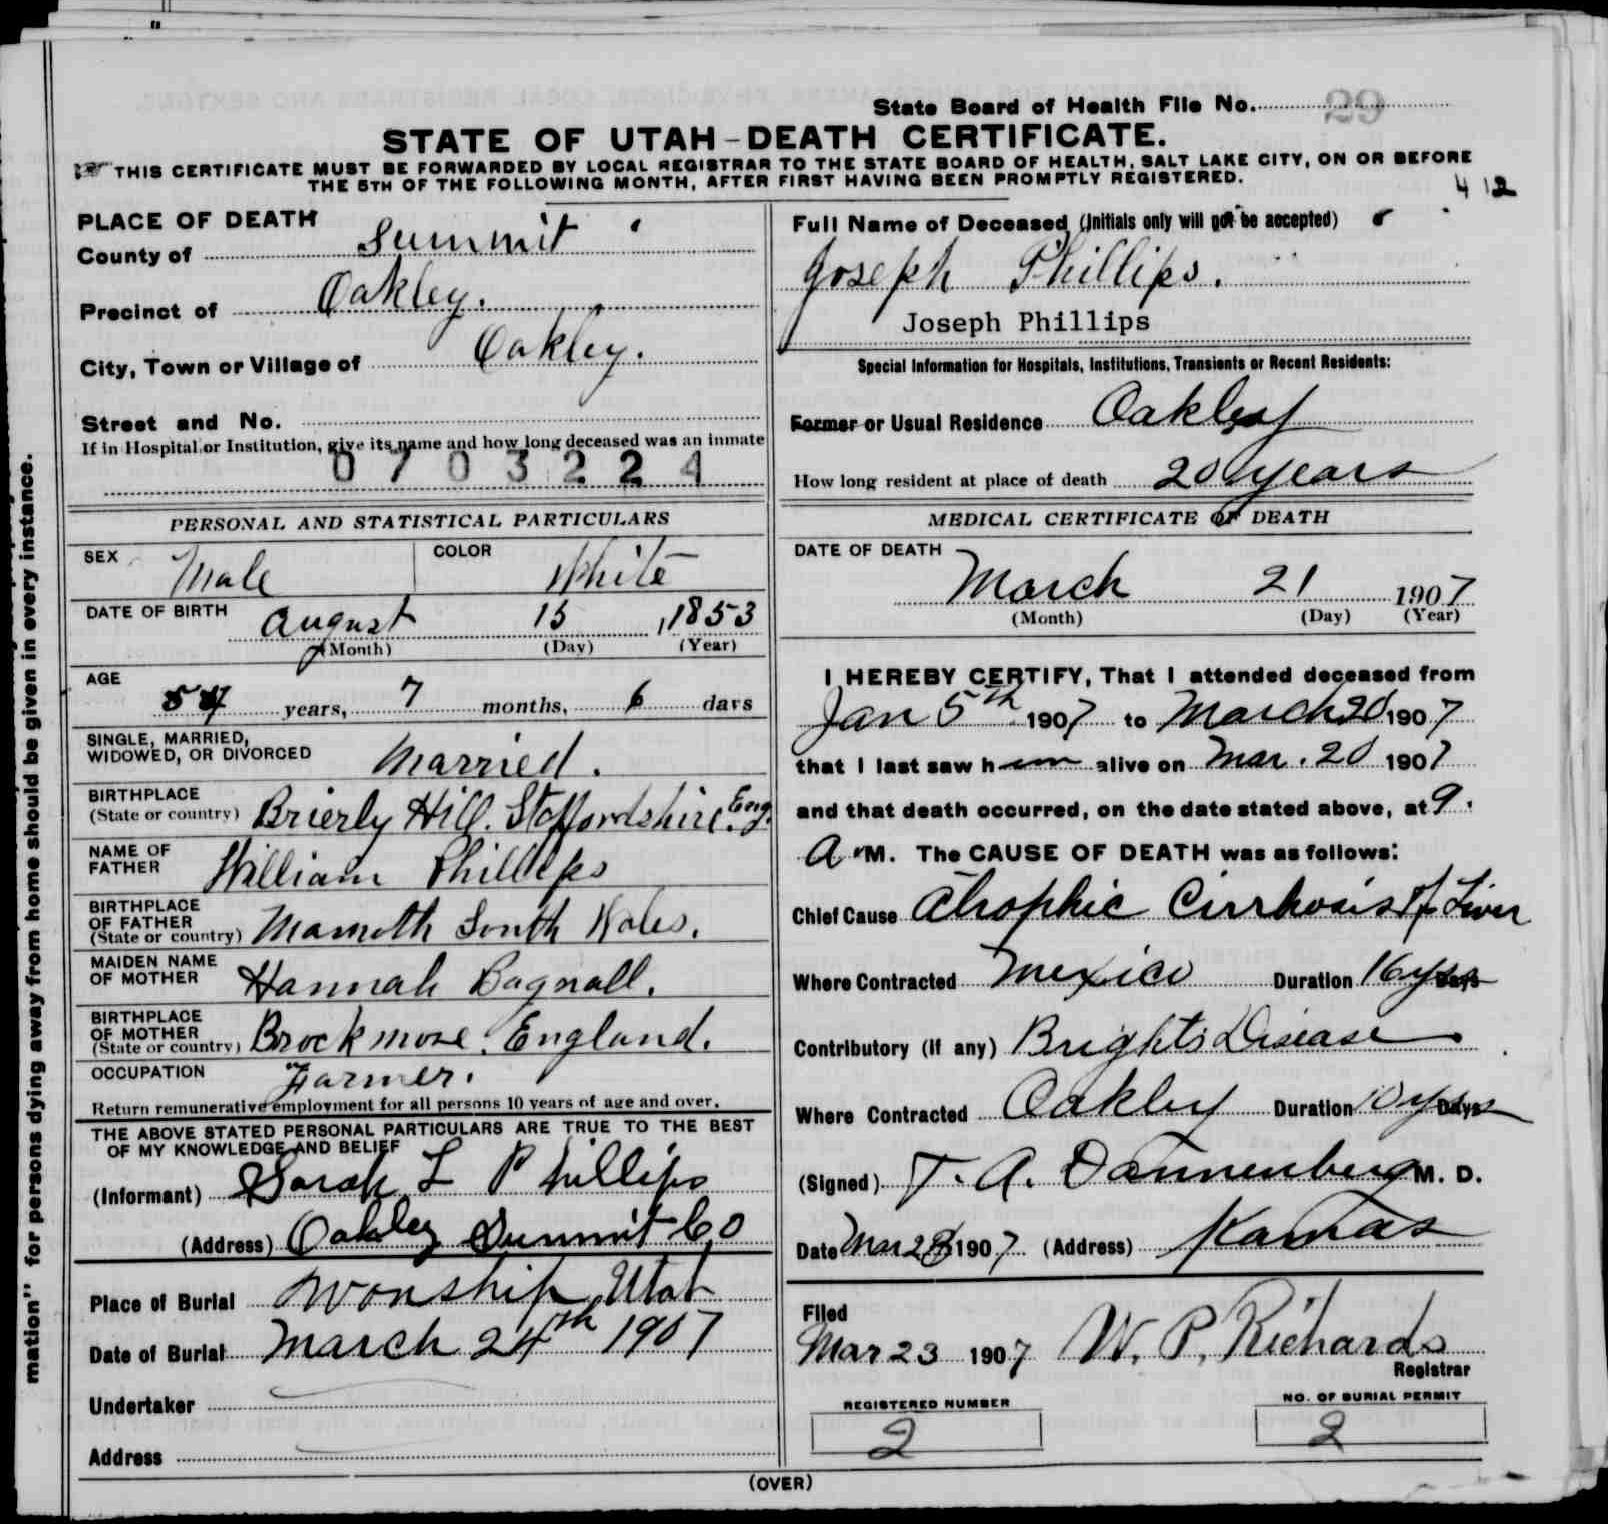 State Board of Health File No. 29
STATE OF UTAH - DEATH CERTIFICATE.
THIS CERTIFICATE MUST BE FORWARDED BY LOCAL REGISTRAR TO THE STATE BOARD OF HEALTH, SALT LAKE CITY, ON OR BEFORE
THE 5TH OF THE FOLLOWING MONTH, AFTER FIRST HAVING BEEN PROMPTLY REGISTERED.
412
PLACE OF DEATH
County of Summit
Precinct of Oakley.
City, Town or Village of Oakley.
Street and No.
If in Hospital or Institution, give its name and how long deceased was an inmate
0703224
PERSONAL AND STATISTICAL PARTICULARS
SEX Male COLOR White
DATE OF BIRTH August 15, 1853
(Month) (Day) (Year)
AGE
years, 7 months, 6 days
SINGLE, MARRIED,
WIDOWED, OR DIVORCED Married.
BIRTHPLACE
(State or country) Brierly Hill. Staffordshire. Eng.
NAME OF
FATHER William Phillips
BIRTHPLACE
OF FATHER
(State or country) Mamoth South Wales.
MAIDEN NAME
OF MOTHER Hannah Bagnall.
BIRTHPLACE
OF MOTHER
(State or country) Brockmore. England.
OCCUPATION Farmer.
Return remunerative employment for all persons 10 years of age and over.
THE ABOVE STATED PERSONAL PARTICULARS ARE TRUE TO THE BEST
OF MY KNOWLEDGE AND BELIEF
(Informant) Sarah L Phillips
(Address) Oakley Summit Co
Place of Burial Wonship Utah
Date of Burial March 24th 1907
Undertaker
Address
Full Name of Deceased (Initials only will not be accepted)
Joseph Phillips.
Joseph Phillips
Special Information for Hospitals, Institutions, Transients or Recent Residents:
Former or Usual Residence Oakley
How long resident at place of death 20 years
MEDICAL CERTIFICATE OF DEATH
DATE OF DEATH
March 21 1907
(Month) (Day) (Year)
I HEREBY CERTIFY, That I attended deceased from
Jan 5th 1907 to March 20 1907
that I last saw him alive on Mar. 20 1907
and that death occurred, on the date stated above, at 9.
A. M. The CAUSE OF DEATH was as follows:
Chief Cause Atrophic Cirrhosis of Liver
Where Contracted Mexico Duration 16 yrs Days
Contributory (if any) Brights Disease
Where Contracted Oakley Duration 10 yrs Days
(Signed) T. A. Dannenberg M. D.
Date Mar 1907 (Address) Kamas
Filed
Mar 23 1907 W. P. Richards
Registrar
REGISTERED NUMBER
2
NO. OF BURIAL PERMIT
2
(OVER)
mation" for persons dying away from home should be given in every instance.